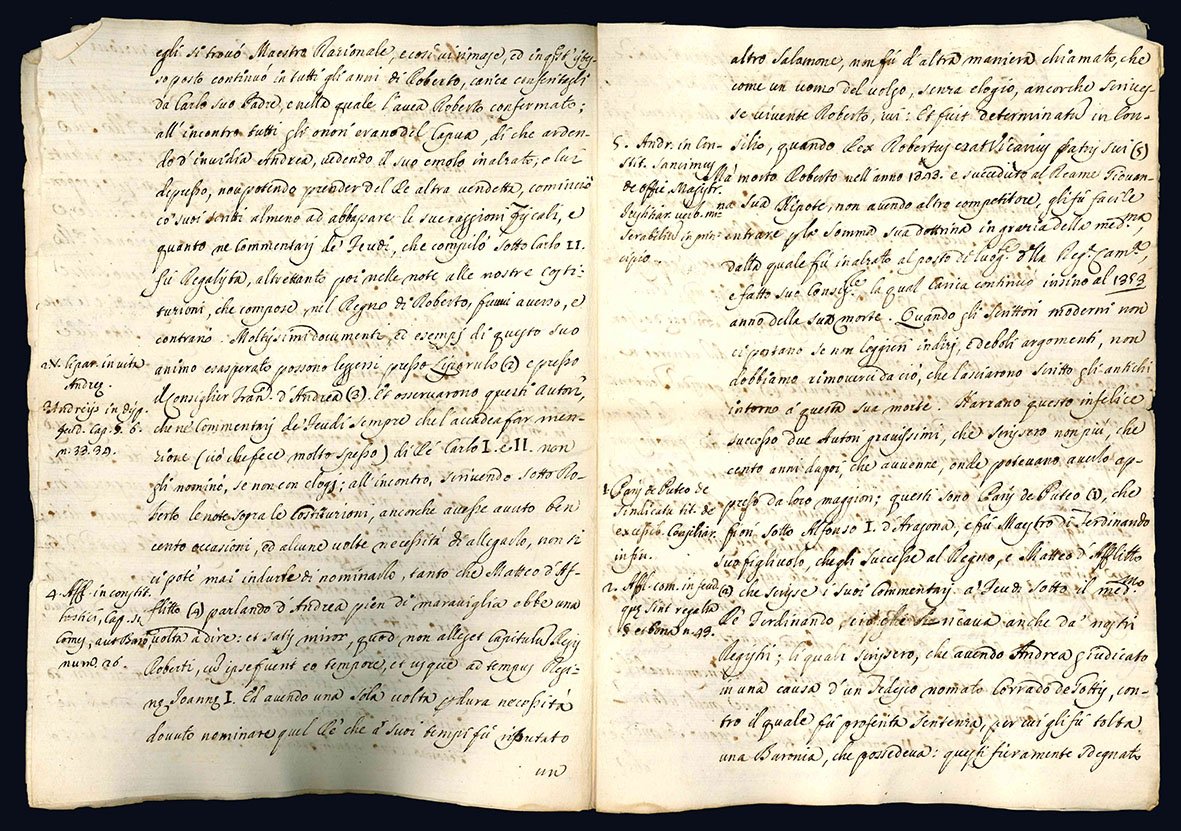 egli si trovò Maestro Razionale, e così vi rimase, ed in
so posto continuò in tutti gli anni di Roberto, carica
da Carlo suo Padre, e nella quale l'avea Roberto confermato;
all'incontro tutti gli onori erano del Capua, di che arden-
do d'invidia Andrea, vedendo il suo emolo inalzato, e lui
depresso, non potendo prender del Rè altra vendetta, cominciò
co' suoi scritti almeno ad abbassare le sue raggioni Fiscali, e
quanto ne Commentarj de' Feudi, che compulò sotto Carlo II.
fù Regalista, altrettanto poi nelle note alle nostre costi-
tuzioni, che compose nel Regno di Roberto, fummi averso, e
contrario. Moltissimi documenti, ed esempj di questo suo
2. N. Lipar. in vita
Andreę.
animo esasperato possono leggersi presso Liparulo (2) e presso
3. Andreijs in disp.
feud. Cap. 5. 6.
n. 33. 34.
il Consiglier Fran. d'Andrea (3). Et osservarono questi Autori,
che ne' Commentarj de' Feudi sempre che l'accadea far men-
zione (ciò che fece molto spesso) di Rè Carlo I. e II. non
gli nominò, se non con elogj; all'incontro, scrivendo sotto Ro-
berto le note sopra le Costituzioni, ancorche avesse avuto ben
cento occasioni, ed alcune volte necessità di allegarlo, non si
ci potè mai indurre di nominarlo, tanto che Matteo d'Af-
4. Affl. in constit.
hostici, Cap. si
Comes, aut Baro,
num. 26.
flitto (4) parlando d'Andrea pien di maraviglia ebbe una
volta à dire: et satis miror, quod non alleget Capitula Regis
Roberti, cum ipse fuerit eo tempore, et usque ad tempus Regi-
nę Joannę I. Ed avendo una sola volta p dura necessità
dovuto nominare quel Rè che à suoi tempi fù riputato
un
altro Salamone, non fù d'altra maniera chiamato, che
come un uomo del volgo, senza elogio, ancorche scrives-
se vivente Roberto, ivi: Et fuit determinatu in Con-
5. Andr. in Con-
stit. Sancimus
de offic. Magistr.
Justitiar. verb. mi-
serabiliu in prin-
cipio.
silio, quando Rex Robertus erat Vicarius Patris sui (5)
Mà morto Roberto nell'anno 1343. e succeduto al Reame Giovan-
na sua Nipote, non avendo altro competitore, gli fù facile
entrare p la somma sua dottrina in grazia della med.ma,
dalla quale fù inalzato al posto di Luog.te della Reg.a Cam.a,
e fatto suo Consig.re la qual Carica continuò insino al 1353
anno della sua morte. Quando gli Scrittori moderni non
ci portano se non leggieri indizj, e deboli argomenti, non
dobbiamo rimoverci da ciò, che lasciarono scritto gli antichi
intorno à questa sua morte. Narrano questo infelice
successo due Autori gravissimi, che scrissero non più, che
cento anni dapoi, che avvenne, onde potevano averlo ap-
1. Paris de Puteo de
Sindicatu tit. de
excessib. Consiliar.
in fin.
preso da loro maggiori; questi sono Paris de Puteo (1), che
fiorì sotto Alfonso I. d'Aragona, e fù Maestro di Ferdinando
suo figlivolo, che gli successe al Regno, e Matteo d'Afflitto
2. Affl. com. in feud.
quę sint regalia
§. et bona n. 43.
(2) che scrisse i suoi Commentarj à Feudi sotto il med.mo
Rè Ferdinando, anche da' nostri
Registri; li quali scrissero, che avendo Andrea giudicato
in una causa d'un Tedesco nomato Corrado de Gottis, con-
tro il quale fù proferita sentenza, per cui gli fù tolta
una Baronia, che possedeva: questi fieramente sdegnato